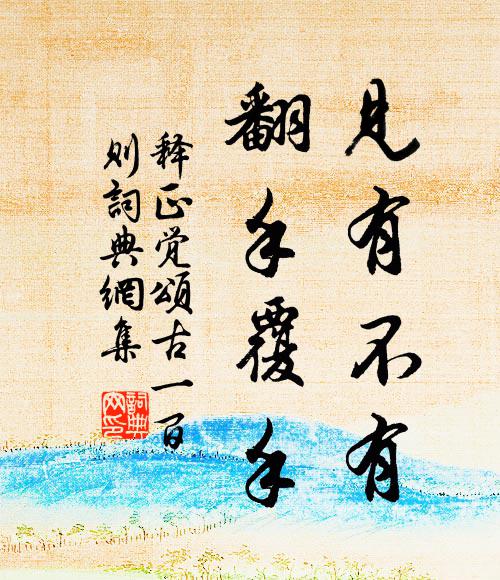 見有不有
翻手覆手
释正觉頌古一百
则詞典網集
詞典
网印